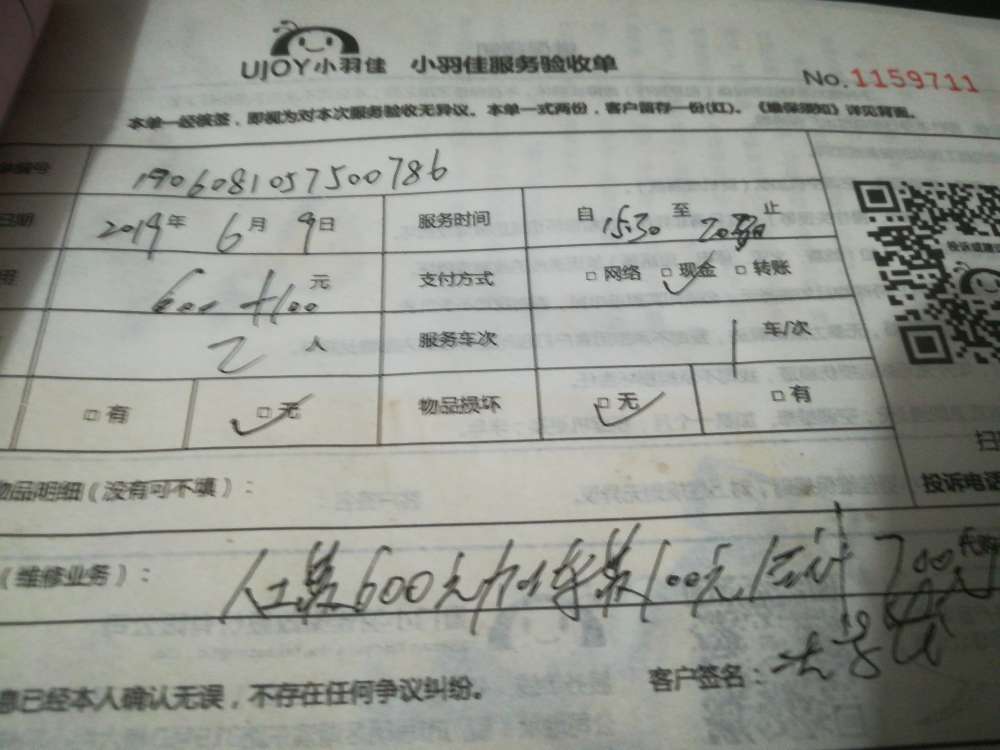 UJOY小羽佳 小羽佳服务验收单
No.1159711
本单一经核签，即视为对本次服务验收无异议。本单一式两份，客户留存一份(红)。《维保须知》详见背面。
编号 1906081057500786
日期 2019年 6月 9日 服务时间 自 15:30 至 止
600+100 元 支付方式 □网络 □现金 □转账
2 人 服务车次 1 车/次
□有 □无 物品损坏 □无 □有
投诉或建
扫
投诉电话
物品明细（没有可不填）：
（维修业务）： 人工费600元加车费100元 合计700元
息已经本人确认无误，不存在任何争议纠纷。
客户签名：